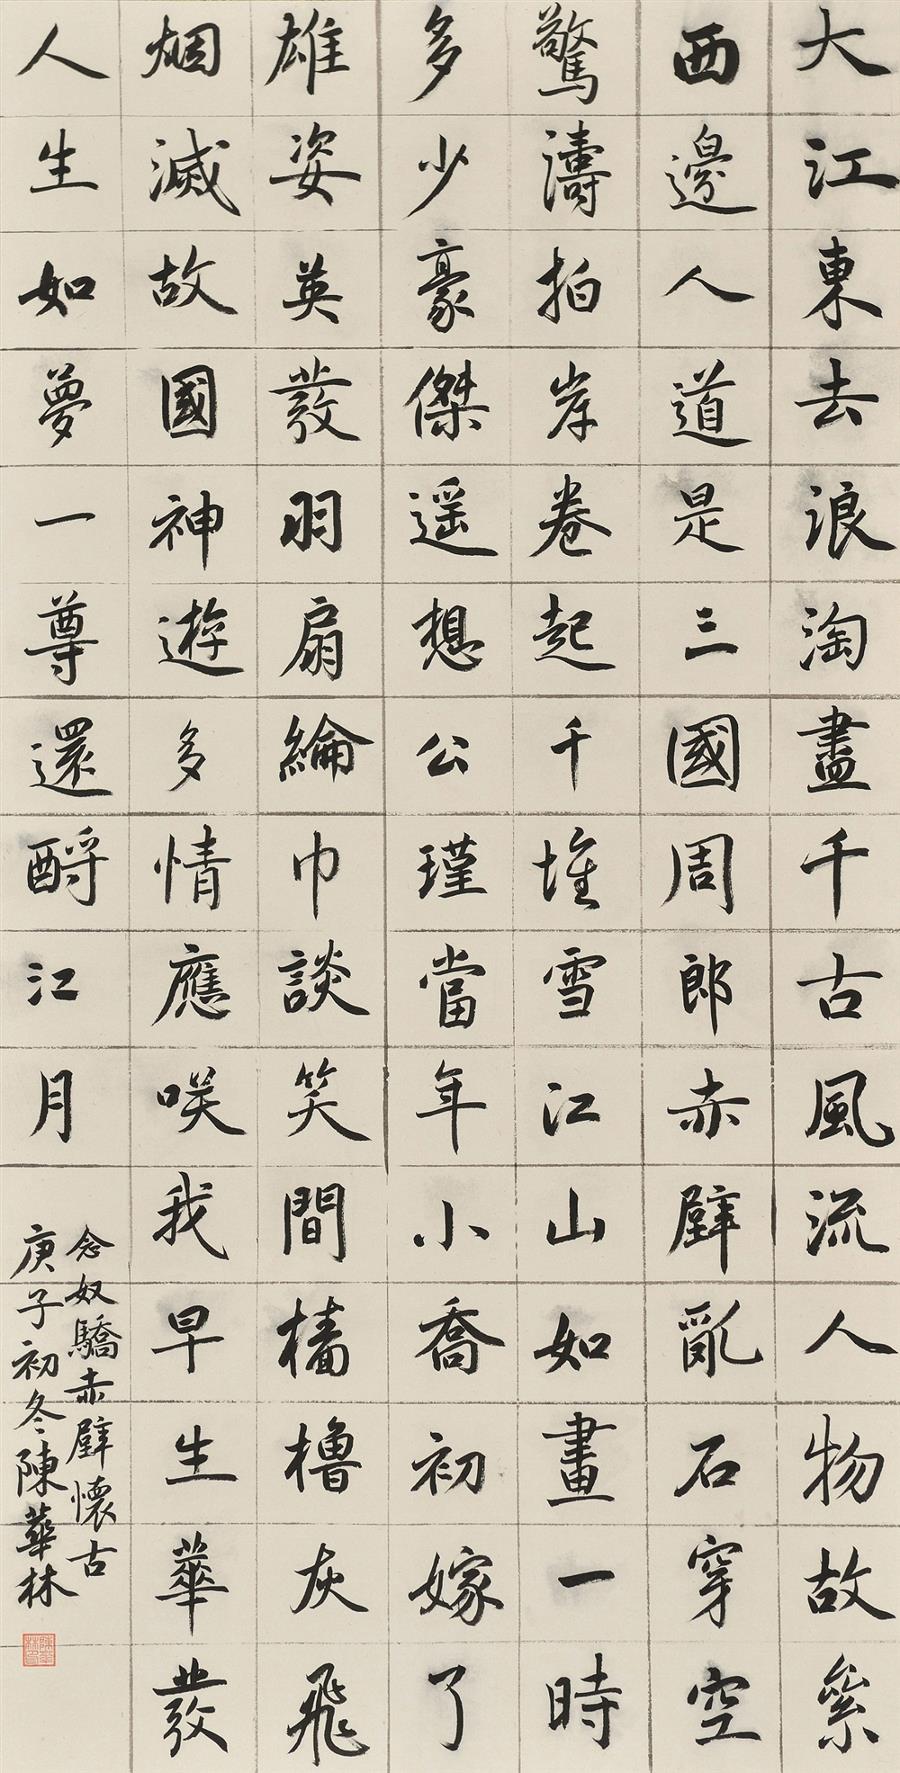 大江東去浪淘盡千古風流人物故壘
西邊人道是三國周郎赤壁亂石穿空
驚濤拍岸卷起千堆雪江山如畫一時
多少豪傑遥想公瑾當年小喬初嫁了
雄姿英發羽扇綸巾談笑間檣櫓灰飛
烟滅故國神遊多情應咲我早生華發
人生如夢一尊還酹江月
念奴驕赤壁懷古
庚子初冬陳華林